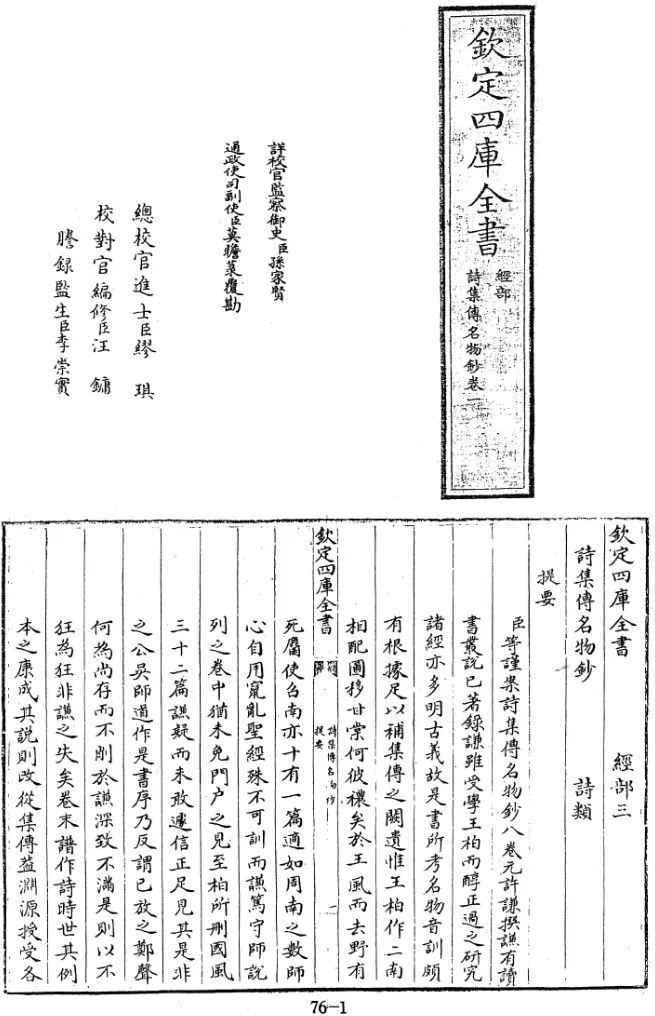 欽定四庫全書
經部
詩集傳名物鈔卷一
詳校官監察御史臣孫家賢
通政使司副使臣莫瞻菉覆勘
總校官進士臣繆琪
校對官編修臣汪鏞
謄錄監生臣李崇實
欽定四庫全書 經部三
詩集傳名物鈔 詩類
提要
臣等謹案詩集傳名物鈔八卷元許謙撰謙有讀
書叢說已著錄謙雖受學王柏而醇正過之研究
諸經亦多明古義故是書所考名物音訓頗
有根據足以補集傳之闕遺惟王柏作二南
相配圖移甘棠何彼穠矣於王風而去野有
欽定四庫全書
詩集傳名物鈔
提要
一
死麕使召南亦十有一篇適如周南之數師
心自用竄亂聖經殊不可訓而謙篤守師說
列之卷中猶未免門户之見至柏所刪國風
三十二篇謙疑而未敢遽信正足見其是非
之公吳師道作是書序乃反謂已放之鄭聲
何為尚存而不削於謙深致不滿是則以不
狂為狂非謙之失矣卷末譜作詩時世其例
本之康成其說則改從集傳葢淵源授受各
76-1